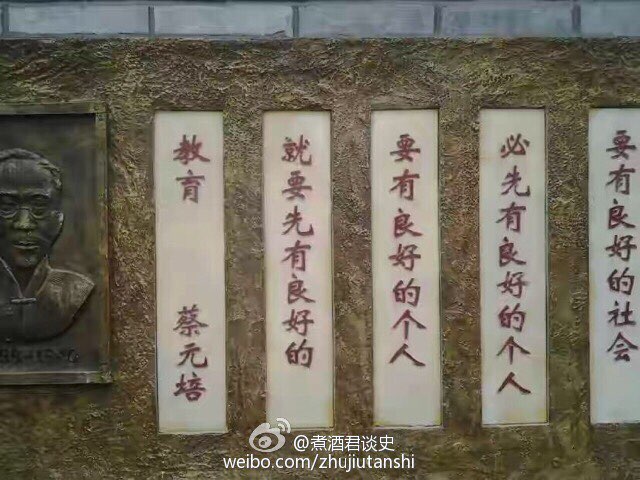 要有良好的社会
必先有良好的个人
要有良好的个人
就要先有良好的
教育 蔡元培
@煮酒君谈史
weibo.com/zhujiutanshi